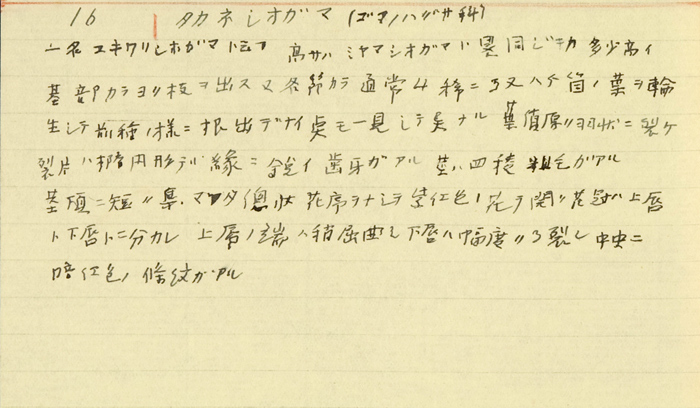 16 タカネシオガマ (ゴマノハグサ科)
一名ユキワリシオガマト云フ 高サハミヤマシオガマト異同ジテカ多少高イ
基部カラヨリ枝ヲ出ス又各節カラ通常4稀ニ3又ハ5箇ノ葉ヲ輪
生シテ前種ノ様ニ根出デナイ点モ一見シテ異ナル 葉ハ羽状ニ裂ケ
裂片ハ楕円形デ縁ニ鋭イ歯牙ガアル 茎ハ四稜 粗毛ガアル
茎頂ニ短 集マッタ總状花序ヲナシテ紅色ノ花ヲ開ク花冠ハ上唇
ト下唇トニ分カレ 上唇ノ端ハ稍屈曲シ下唇ハ幅広ク3裂シ中央ニ
暗紅色ノ條紋ガアル